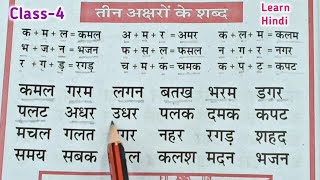 Class-4
Learn Hindi
तीन अक्षरों के शब्द
क + म + ल = कमल  अ + म + र = अमर  क + ल + म = कलम
भ + ज + न = भजन  फ + स + ल = फसल  न + ग + र = नगर
र + ग + ड़ = रगड़  च + म + क = चमक  क + प + ट = कपट
कमल गरम लगन बतख भरम डगर
पलट अधर उधर पलक दमक कपट
मचल गलत नहर रगड़ शहद
समय सबक कलश मदन भजन